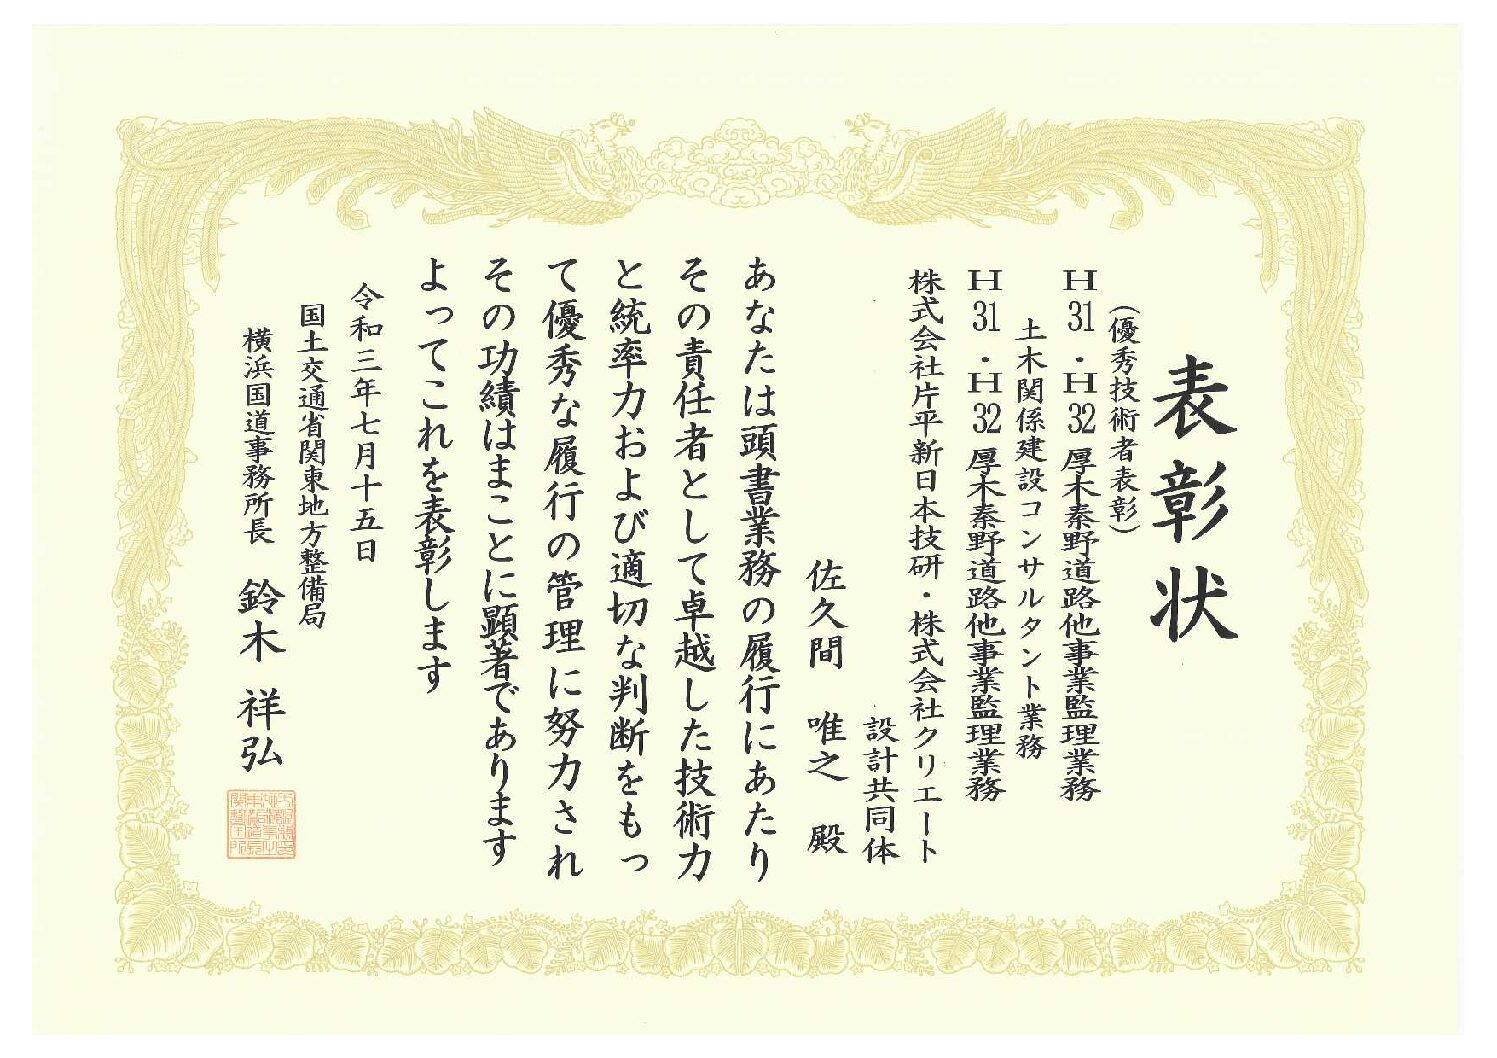 表彰状
（優秀技術者表彰）
H31・H32厚木秦野道路他事業監理業務
土木関係建設コンサルタント業務
H31・H32厚木秦野道路他事業監理業務
株式会社片平新日本技研・株式会社クリエート
設計共同体
佐久間 唯之 殿
あなたは頭書業務の履行にあたり
その責任者として卓越した技術力
と統率力および適切な判断をもっ
て優秀な履行の管理に努力され
その功績はまことに顕著であります
よってこれを表彰します
令和三年七月十五日
国土交通省関東地方整備局
横浜国道事務所長 鈴木 祥弘